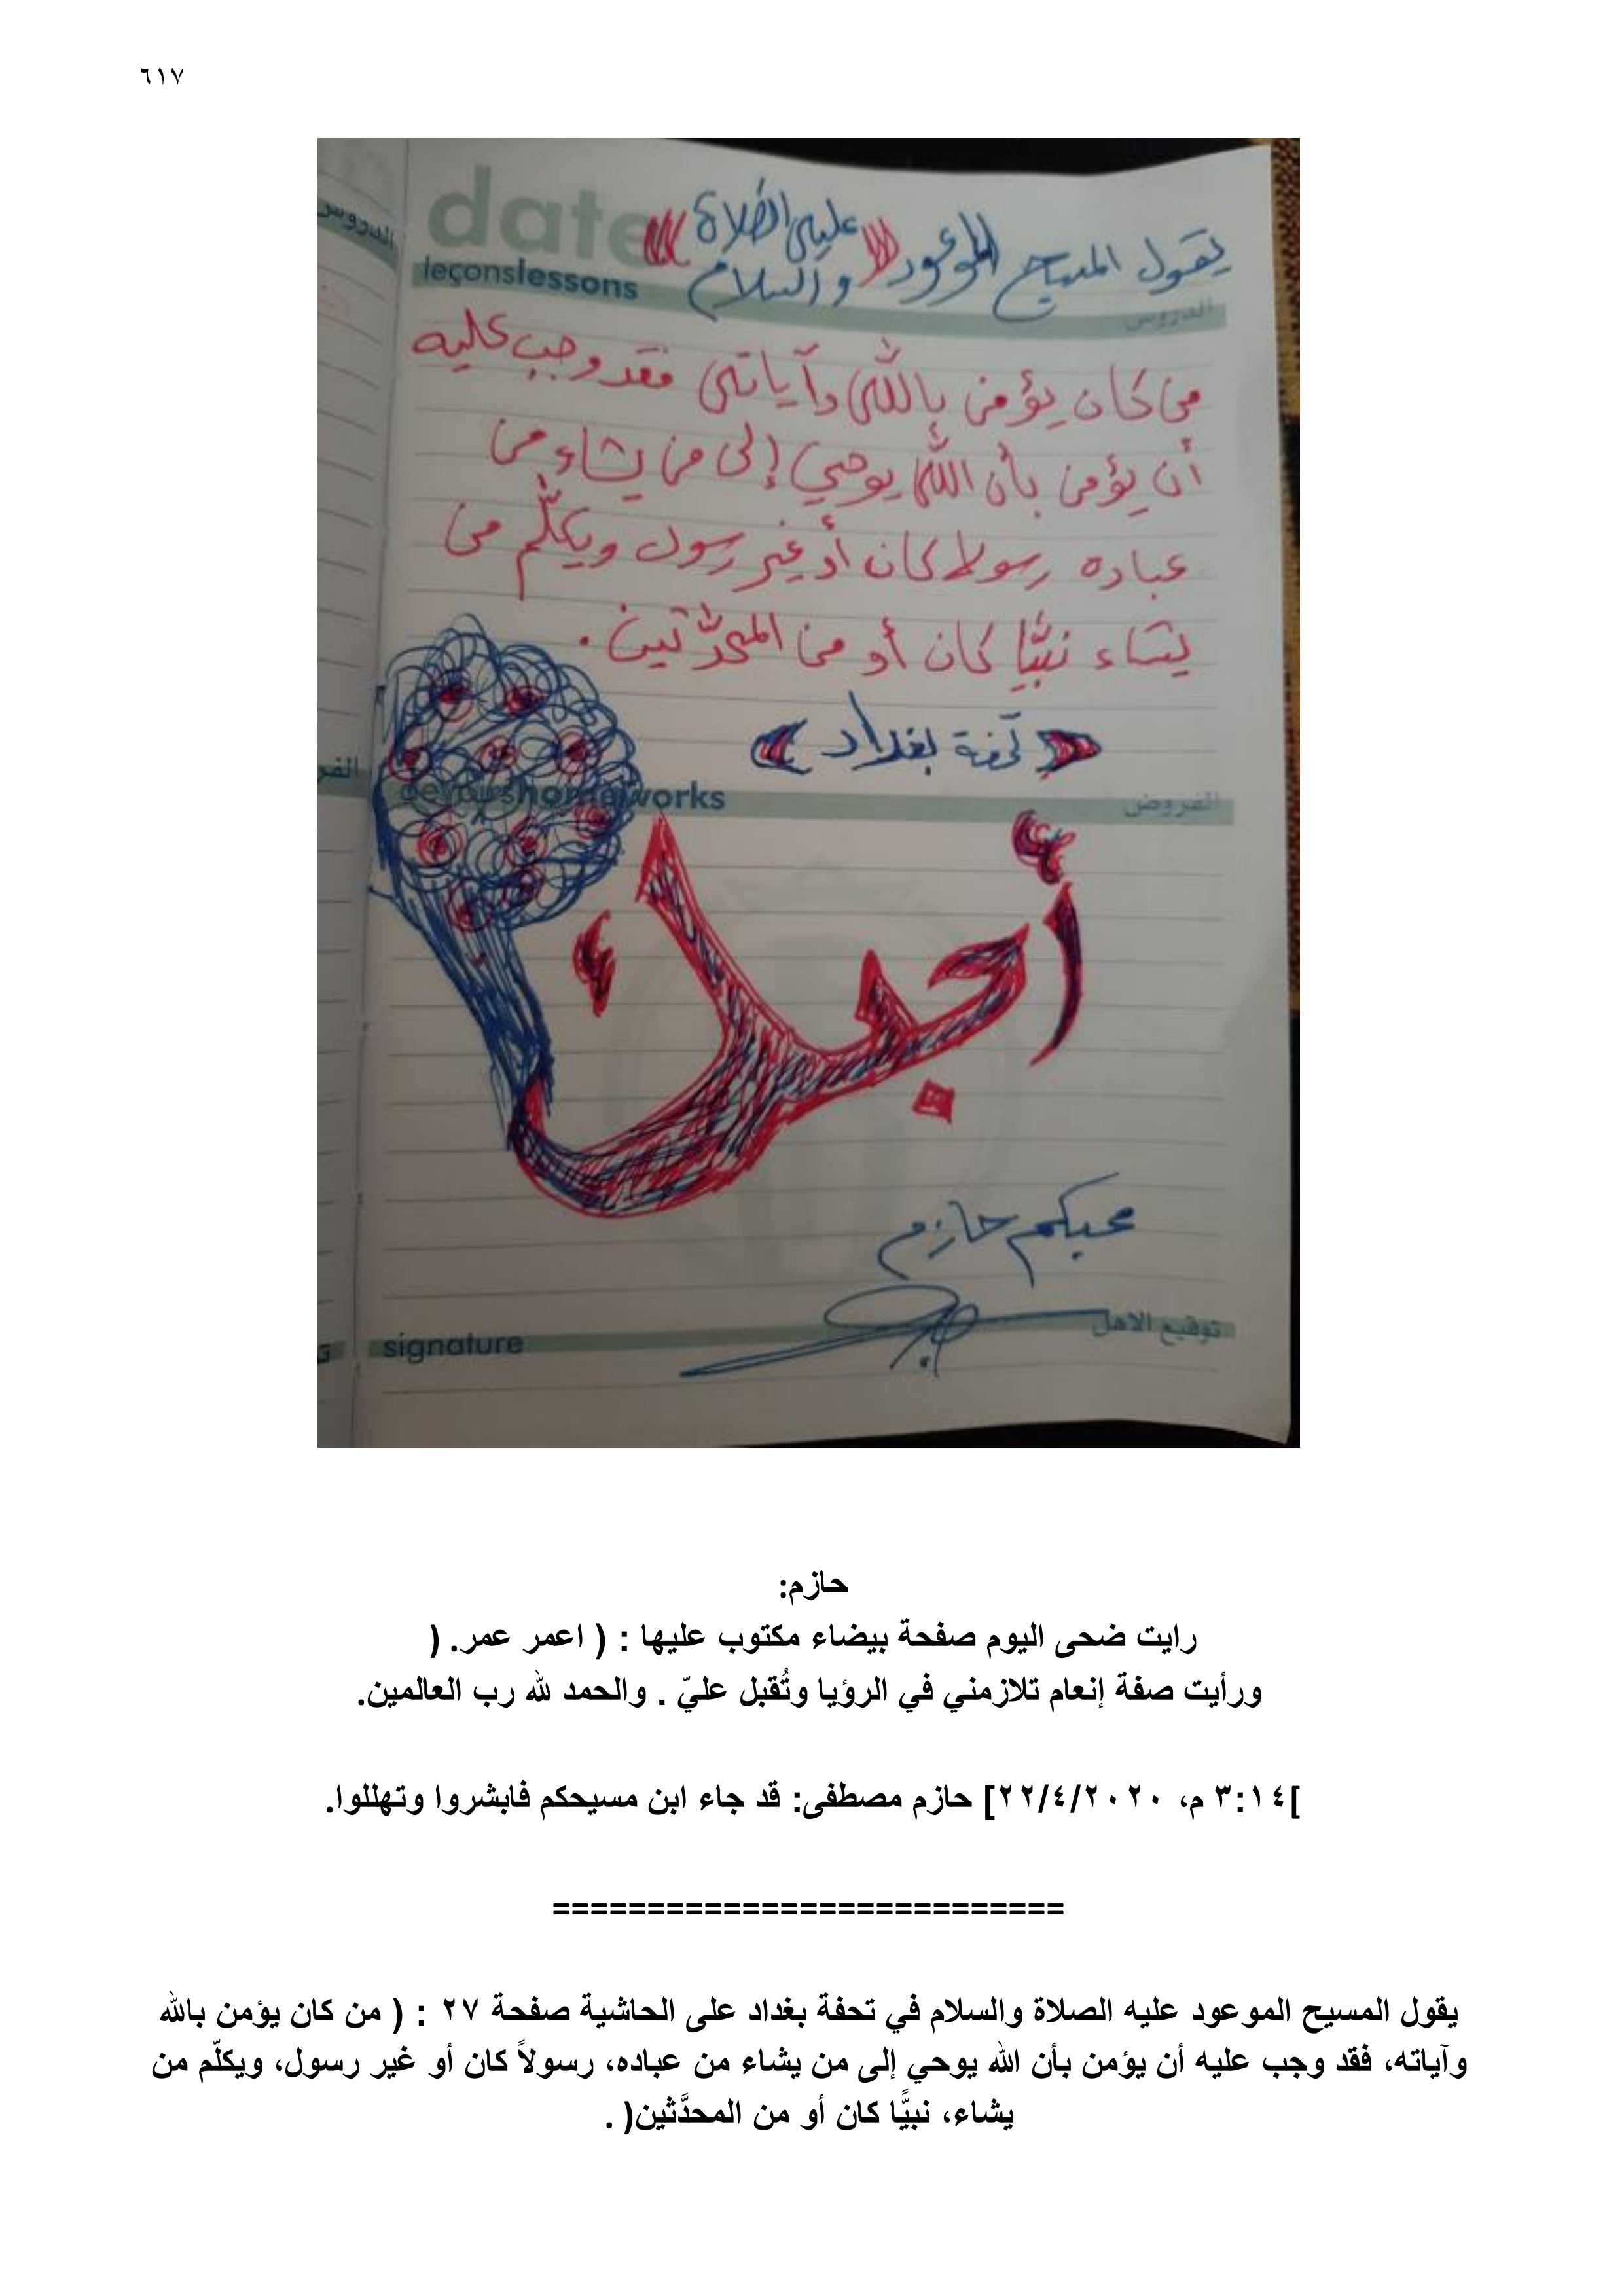 ٦١٧
date
الدروس
يقول المسيح الموعود ((عليه الصلاة والسلام))
leçonslessons
الدروس
من كان يؤمن بالله وآياته فقد وجب عليه
أن يؤمن بأن الله يوحي إلى من يشاء من
عباده رسولا كان أو غير رسول ويكلّم من
يشاء نبيًّا كان أو من المحدّثين .
《 تحفة بغداد 》
devoirshomeworks
الفروض
أحبك
محبكم حازم
signature
توقيع الاهل
حازم:
رايت ضحى اليوم صفحة بيضاء مكتوب عليها : ( اعمر عمر. (
ورأيت صفة إنعام تلازمني في الرؤيا وتُقبل عليّ . والحمد لله رب العالمين.
]٣:١٤ م، ٢٢/٤/٢٠٢٠] حازم مصطفى: قد جاء ابن مسيحكم فابشروا وتهللوا.
===========================
يقول المسيح الموعود عليه الصلاة والسلام في تحفة بغداد على الحاشية صفحة ٢٧ : ( من كان يؤمن بالله
وآياته، فقد وجب عليه أن يؤمن بأن الله يوحي إلى من يشاء من عباده، رسولاً كان أو غير رسول، ويكلّم من
يشاء، نبيًّا كان أو من المحدَّثين( .